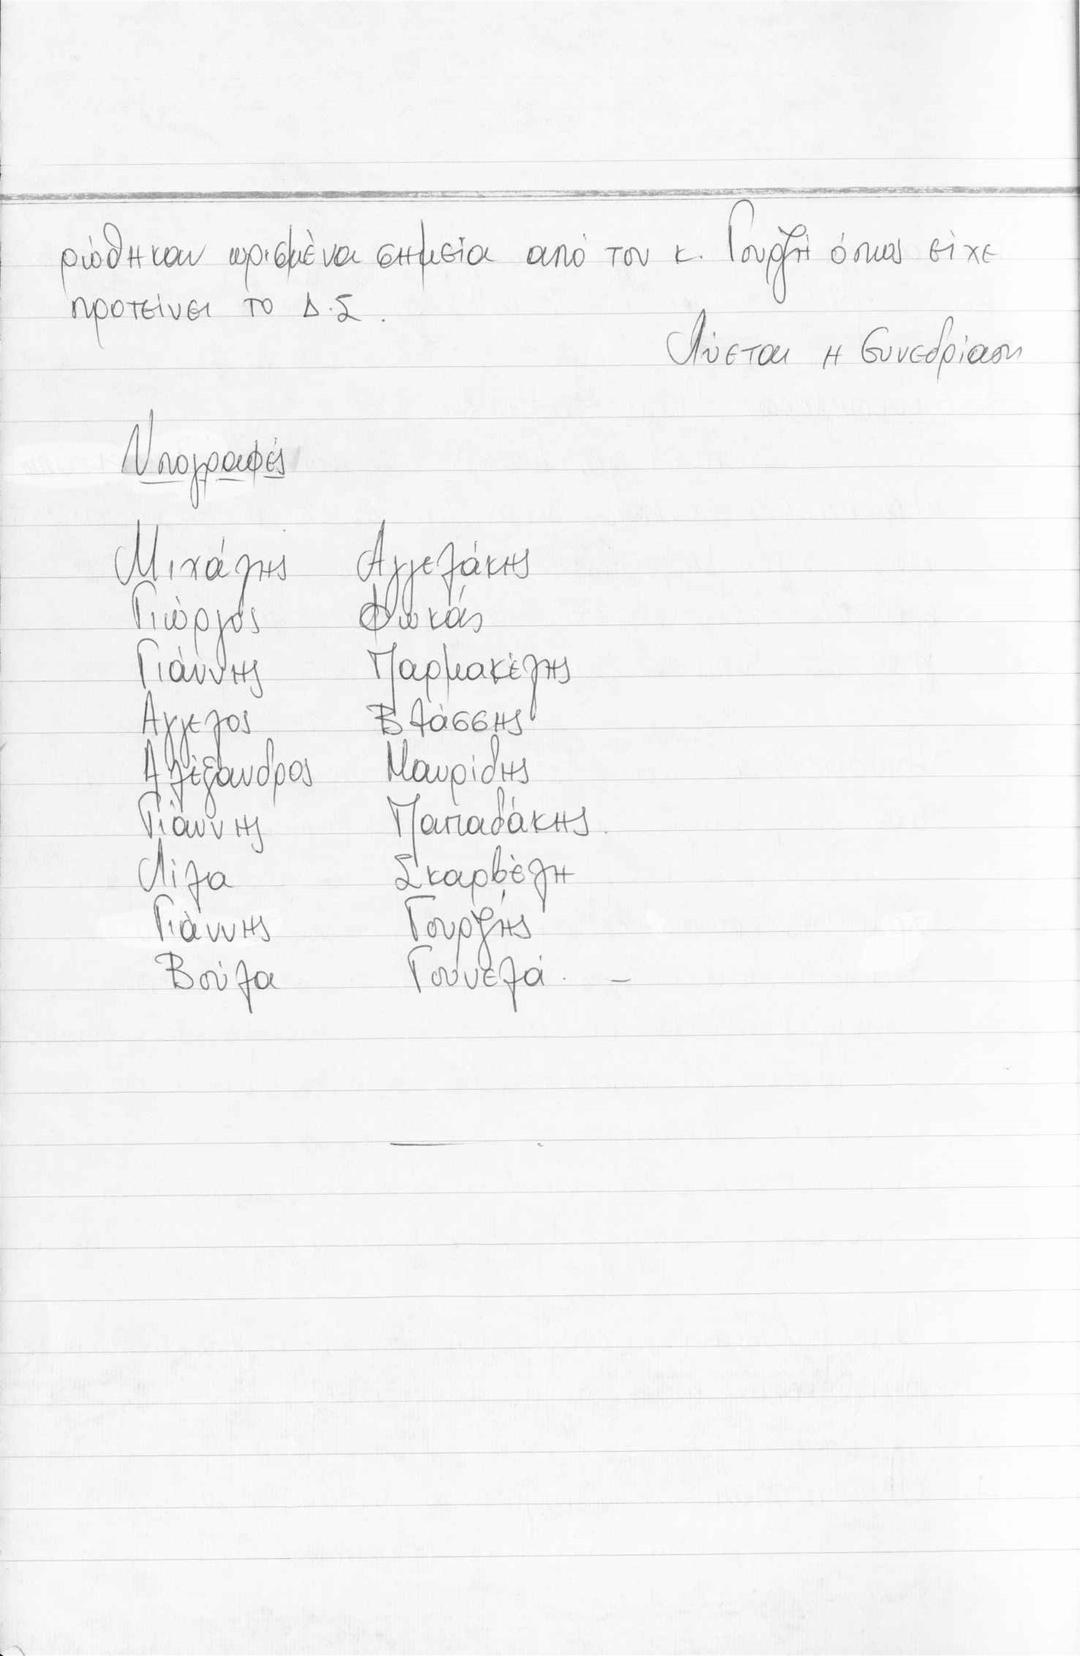 ριώθηκαν ωρισμένα σημεία από τον κ. Γουρζή όπως είχε
προτείνει το Δ.Σ.
Λύεται η Συνεδρίαση
Υπογραφές
Μιχάλης Αγγελάκης
Γιώργος Φωκάς
Γιάννης Παρμακέλης
Αγγελος Βλάσσης
Αλέξανδρος Μαυρίδης
Γιάννης Παπαδάκης.
Λίλα Σκαρβέλη
Γιάννης Γουρζής
Βούλα Γουνελά. –